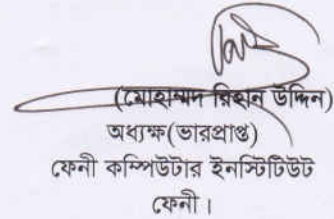 (মোহাম্মদ রিহান উদ্দিন)
অধ্যক্ষ(ভারপ্রাপ্ত)
ফেনী কম্পিউটার ইনস্টিটিউট
ফেনী।